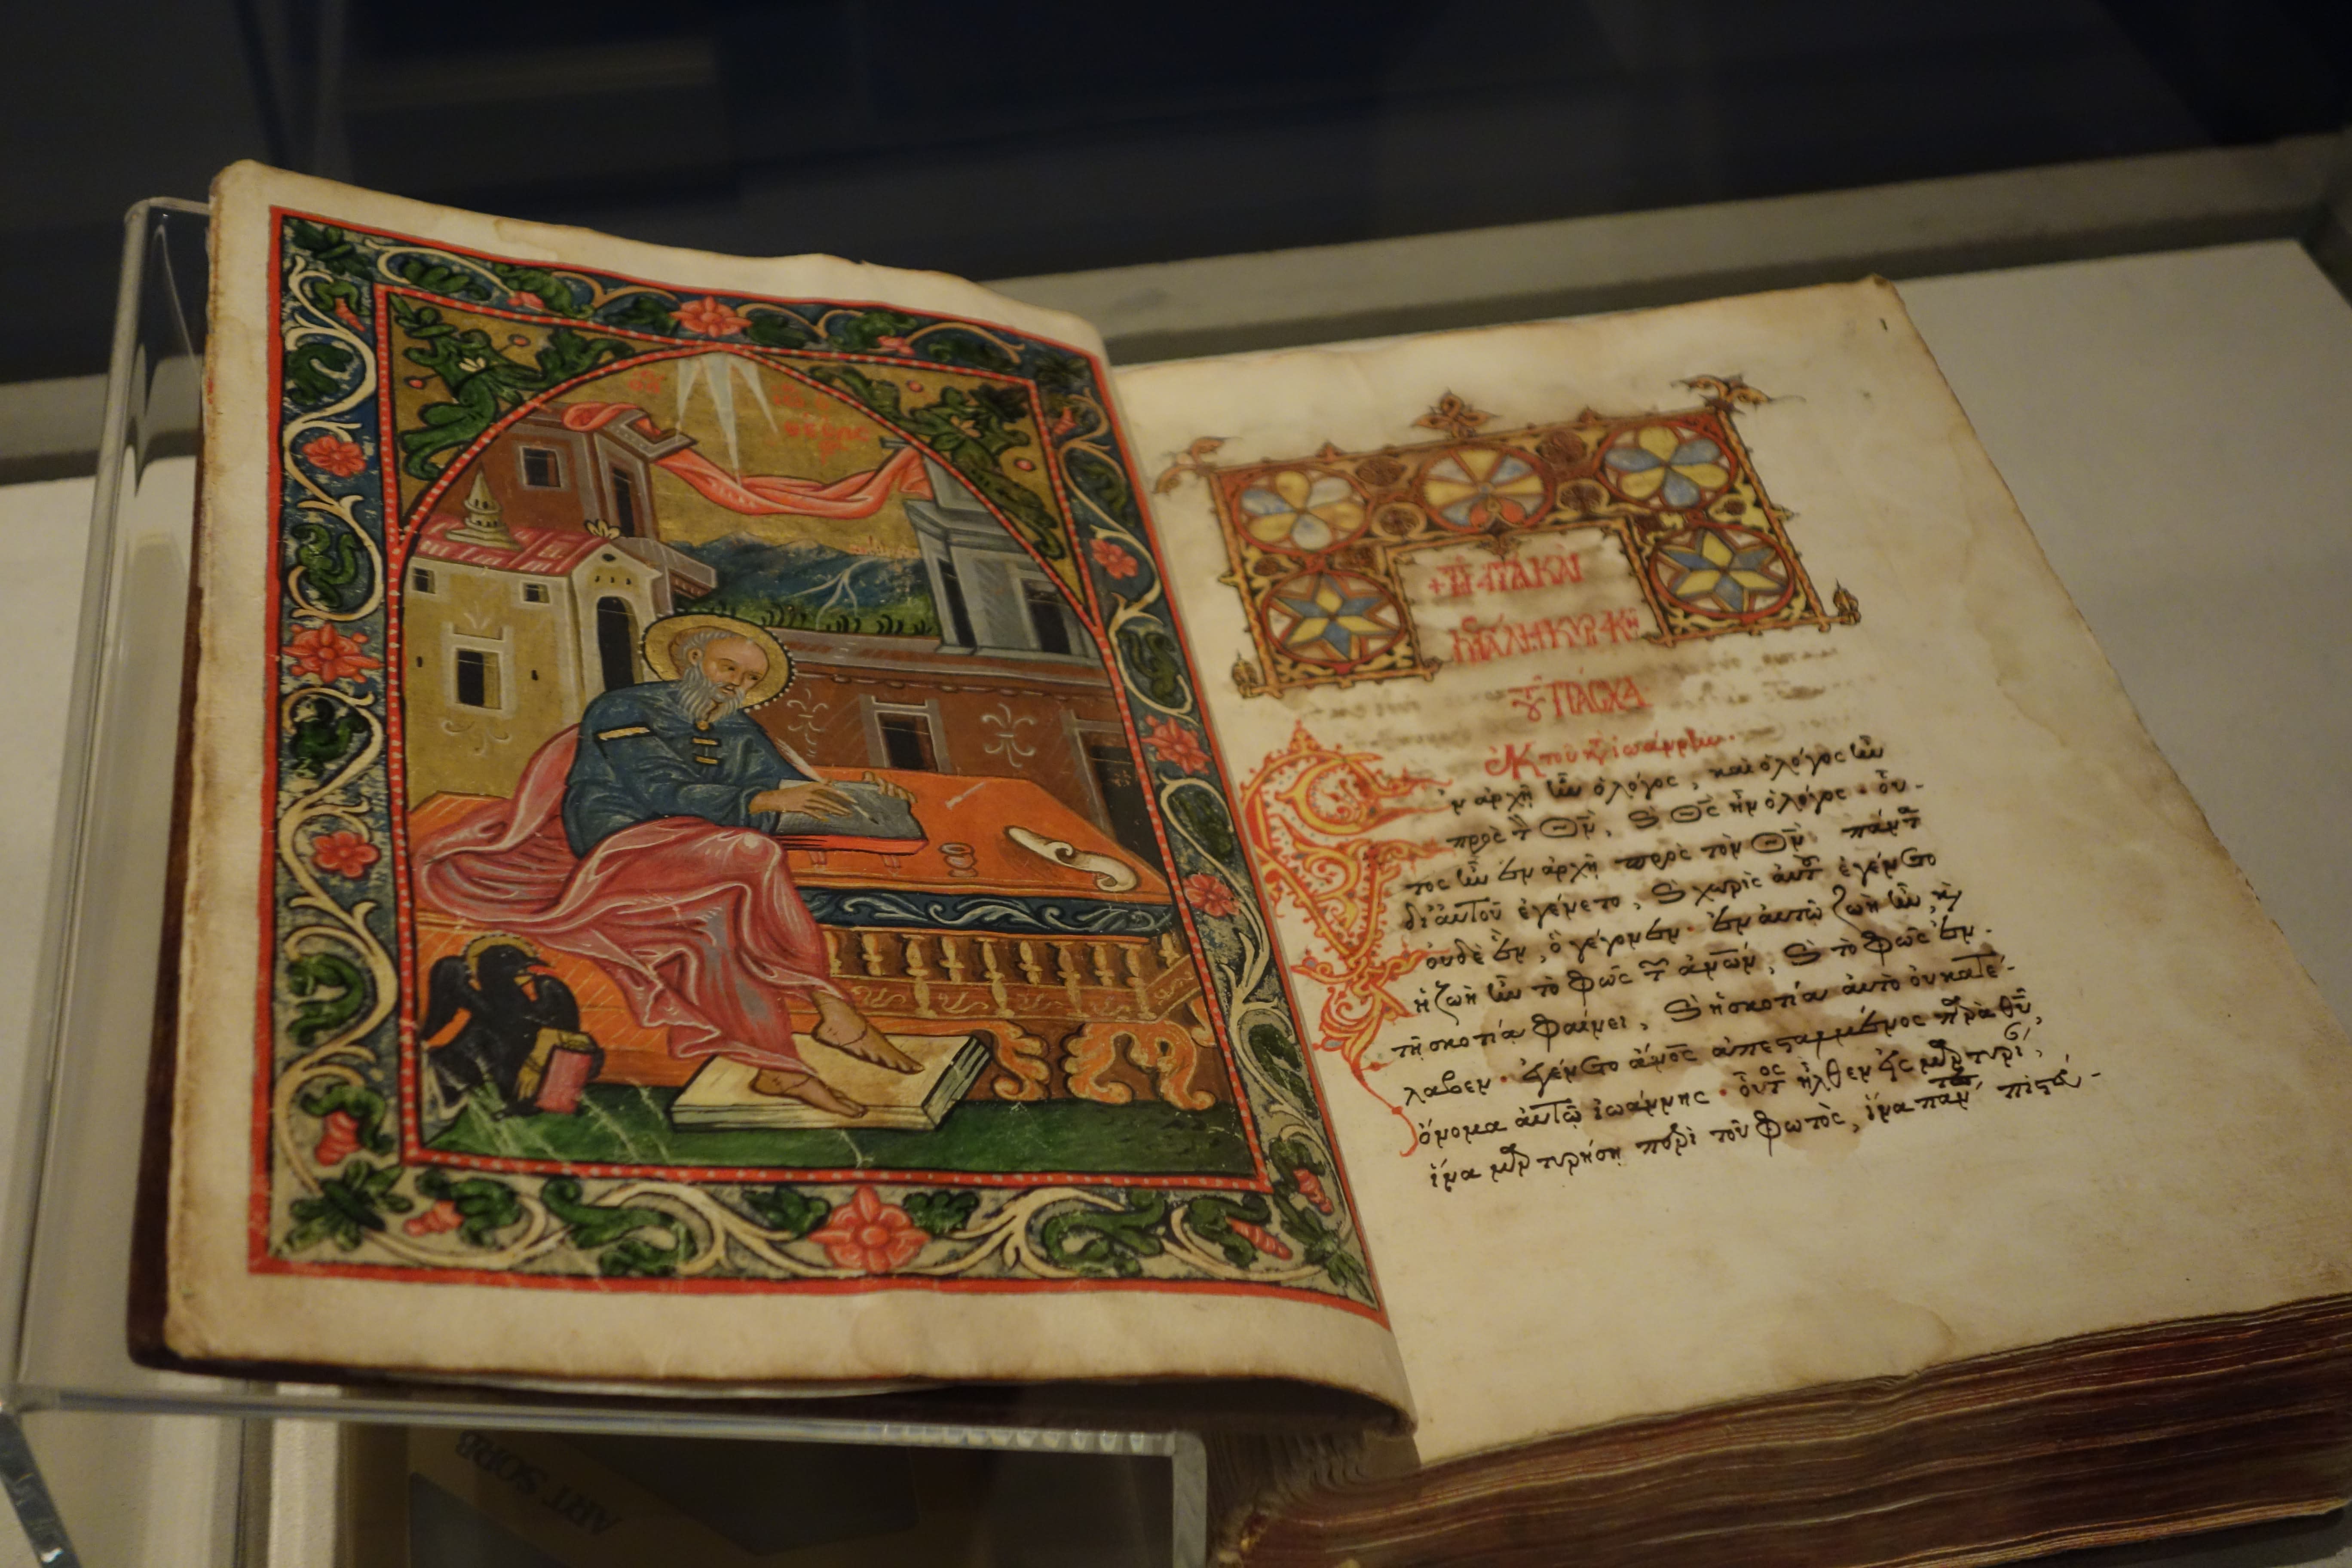 + Τῇ ἁγίᾳ καὶ
μεγάλῃ κυριακῇ
τοῦ ΠΑΣΧΑ
ἐκ τοῦ κατὰ ἰωάννην.
Ἐν ἀρχῇ ἦν ὁ λόγος, καὶ ὁ λόγος ἦν
πρὸς τ Θν, ϗ Θς ἦν ὁ λόγος. οὗ-
τος ἦν ἐν ἀρχῇ πρὸς τὸν Θν. πάντ
δι' αὐτοῦ ἐγένετο, ϗ χωρὶς αὐτ ἐγένετο
οὐδὲ ἓν, ὃ γέγονεν. ἐν αὐτῷ ζωὴ ἦν, ϗ
ἡ ζωὴ ἦν τὸ φῶς τ ἀνων, ϗ τὸ φῶς ἐν
τῇ σκοτίᾳ φαίνει, ϗ ἡ σκοτία αὐτὸ οὐ κατέ-
λαβεν. ἐγένετο ἀνος ἀπεσταλμένος πρὰ θυ,
ὄνομα αὐτῷ ἰωάννης. οὗτος ἦλθεν εἰς μαρτυρί,
ἵνα μαρτυρήσῃ περὶ τοῦ φωτὸς, ἵνα πάντ πιστεύ-
ART SORB